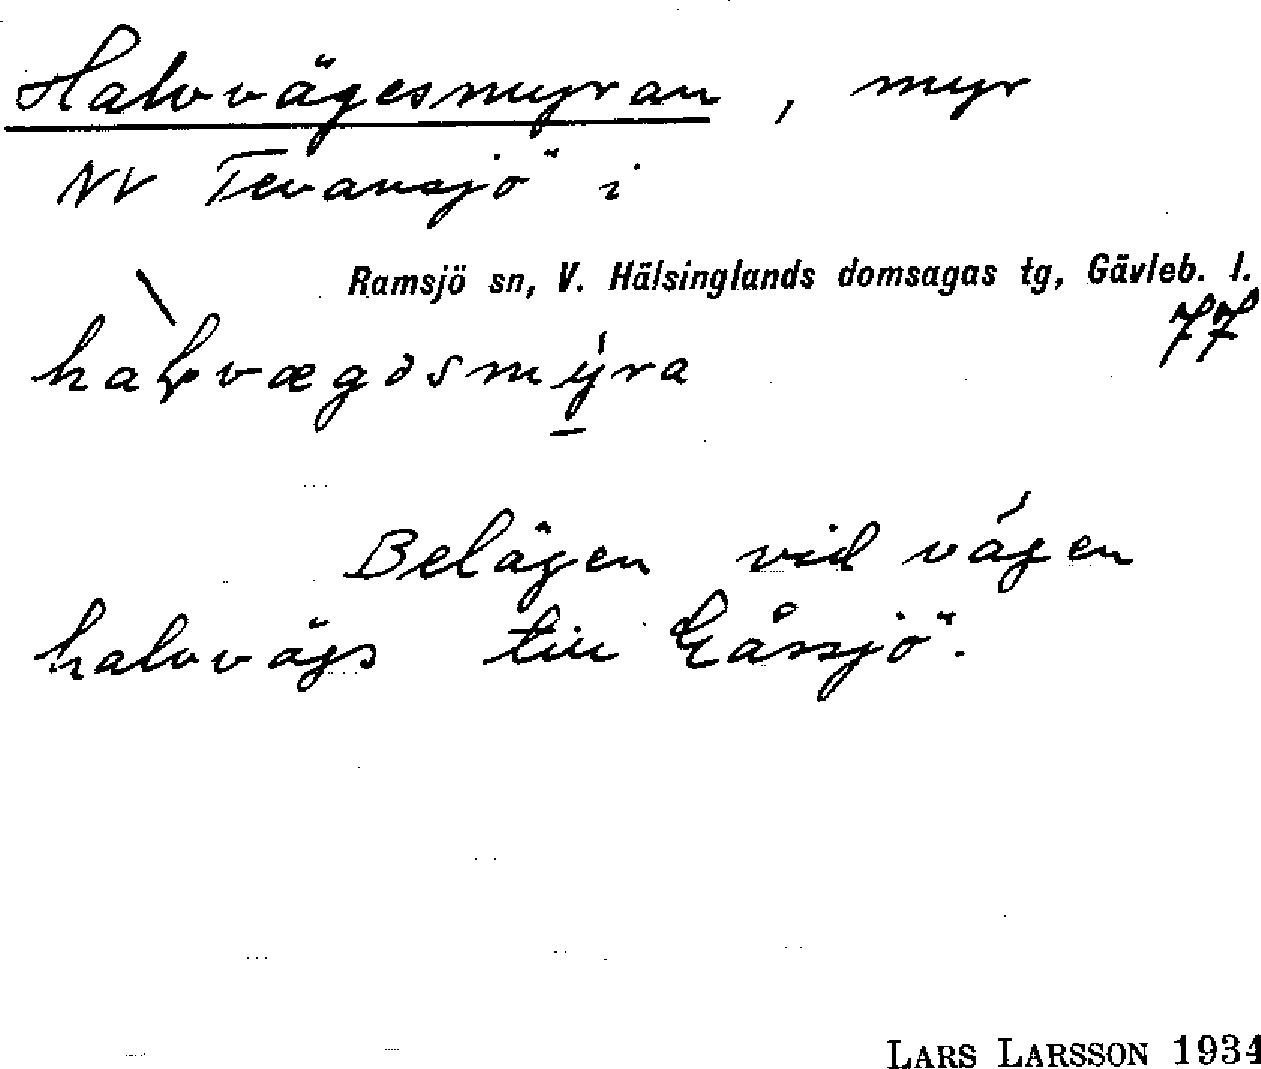 Halvvägesmyran, myr
NV Tevansjö i
Ramsjö sn, V. Hälsinglands domsagas tg, Gävleb. l.
77
Belägen vid vägen
halvvägs till Gåssjö.
LARS LARSSON 1934